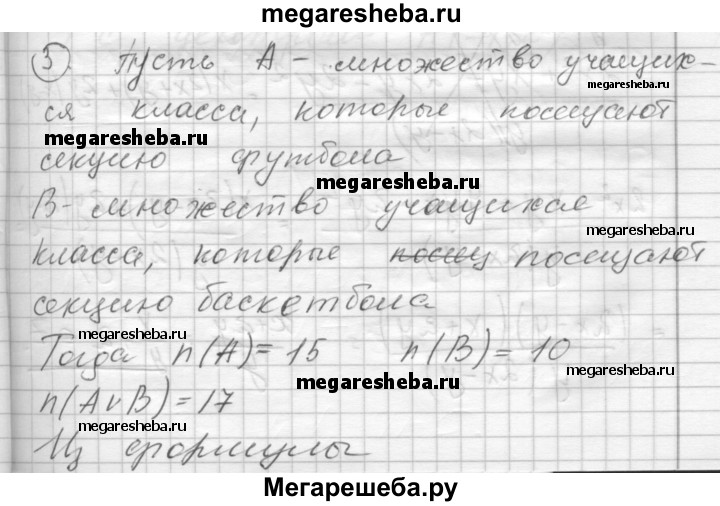 megaresheba.ru
3) Пусть А - множество учащих-
megaresheba.ru
ся класса, которые посещают
megaresheba.ru
секцию футбола
megaresheba.ru
В - множество учащихся
megaresheba.ru
класса, которые посещ посещают
секцию баскетбола
megaresheba.ru
Тогда n(A) = 15 n(B) = 10
megaresheba.ru
megaresheba.ru
n(A∨B) = 17
megaresheba.ru
Из формулы
Мегарешеба.ру